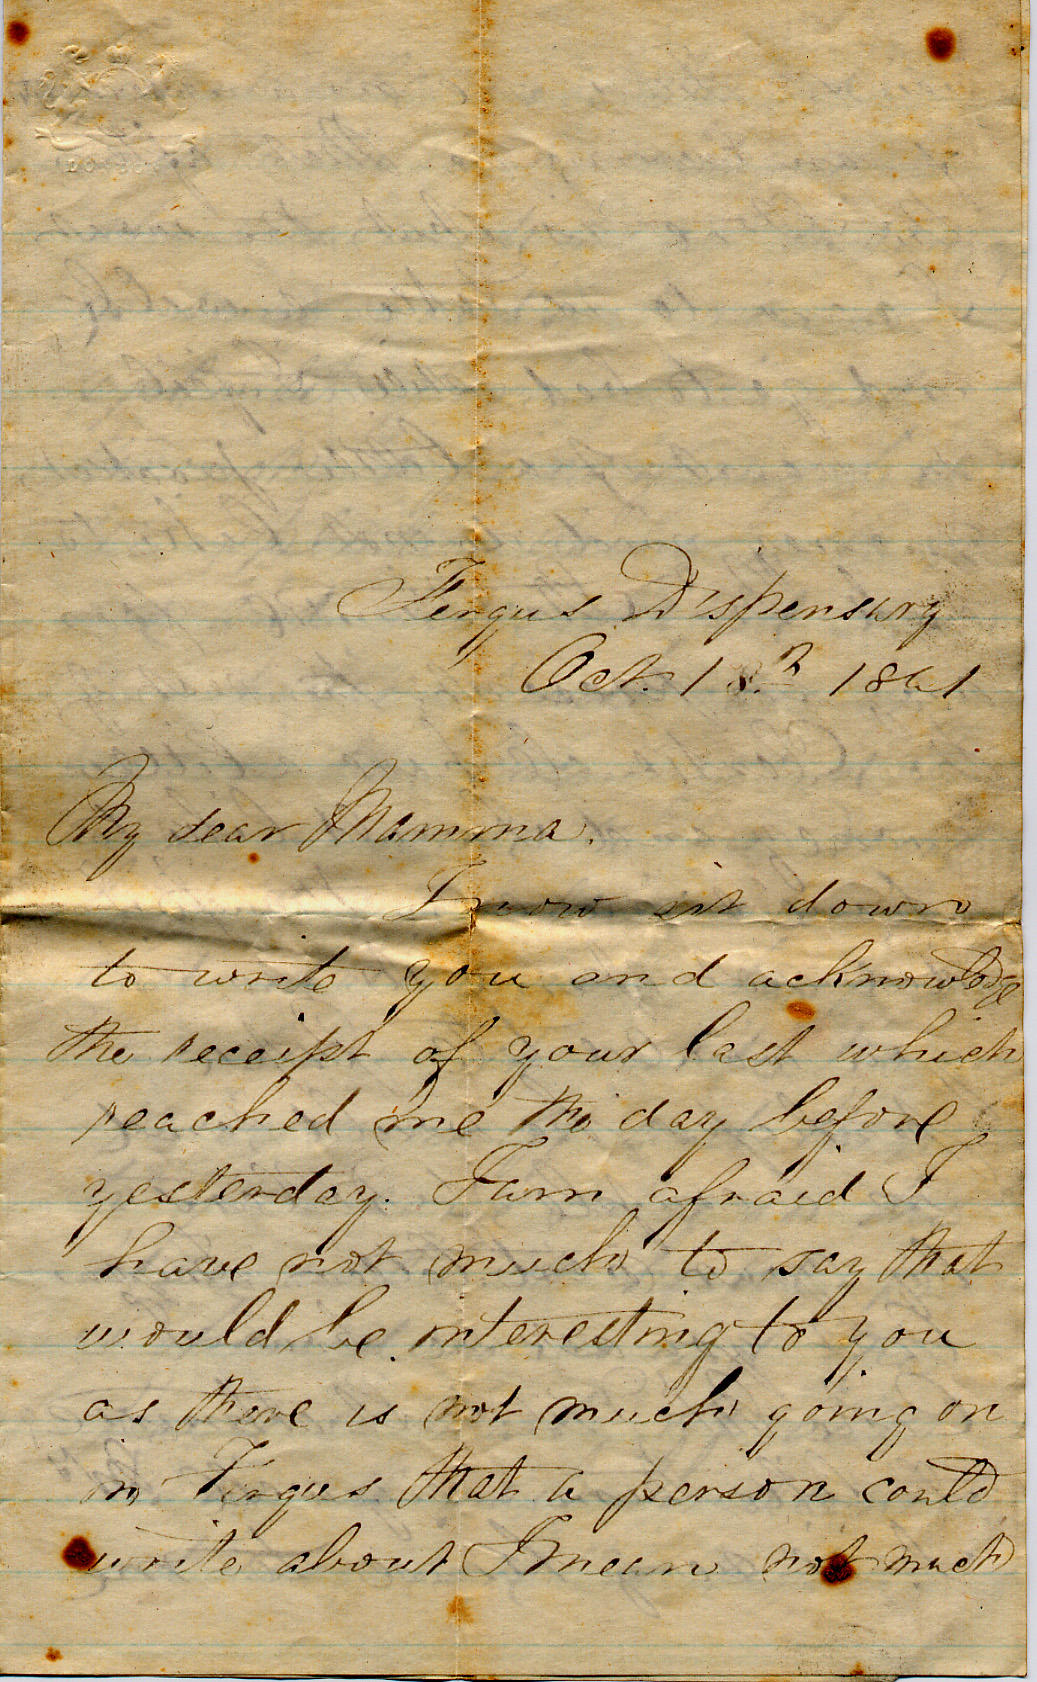 Fergus Dispensary
Oct. 18th 1861
My dear Mamma.
I now sit down
to write you and acknowledge
the receipt of your last which
reached me the day before
yesterday. I am afraid I
have not much to say that
would be interesting to you
as there is not much going on
in Fergus that a person could
write about I mean not much